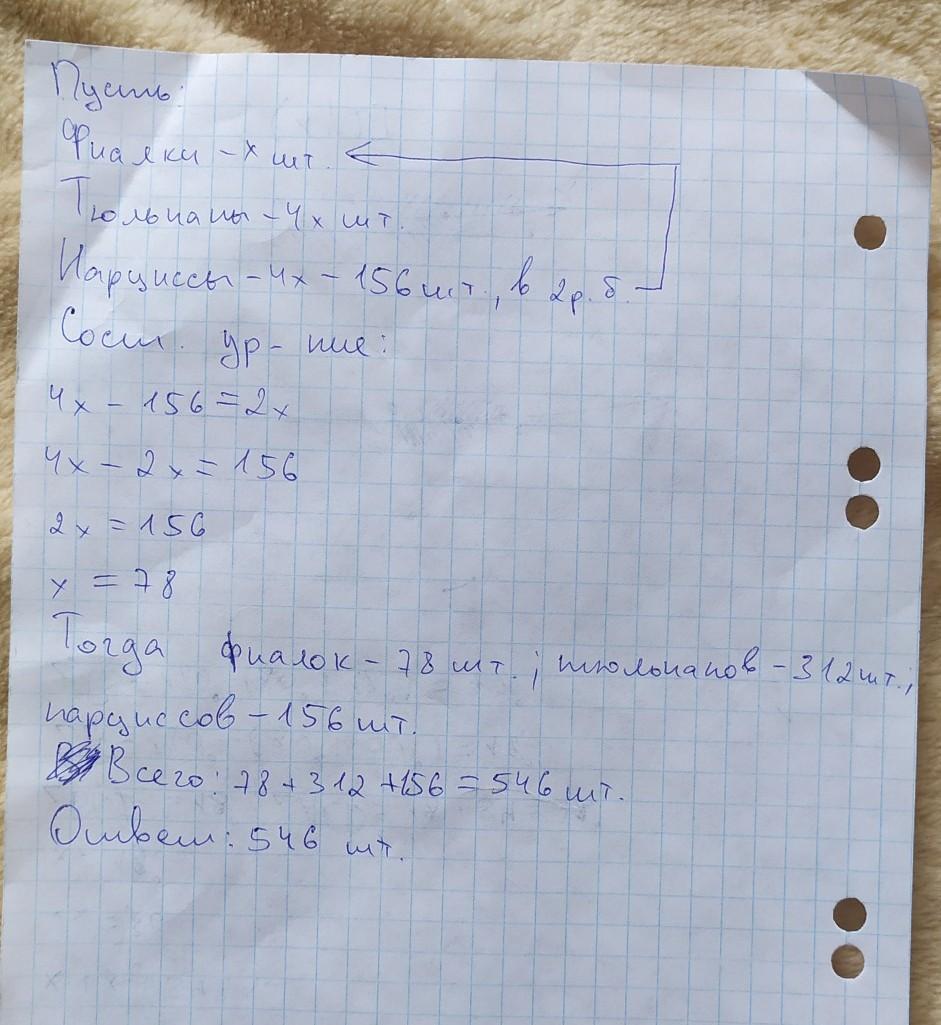 Пусть:
Фиалки - х шт.
Тюльпаны - 4х шт.
Нарциссы - 4х - 156 шт., в 2 р. б.
Сост. ур-ние:
4х - 156 = 2х
4х - 2х = 156
2х = 156
х = 78
Тогда фиалок - 78 шт.; тюльпанов - 312 шт.;
нарциссов - 156 шт.
Всего: 78 + 312 + 156 = 546 шт.
Ответ: 546 шт.